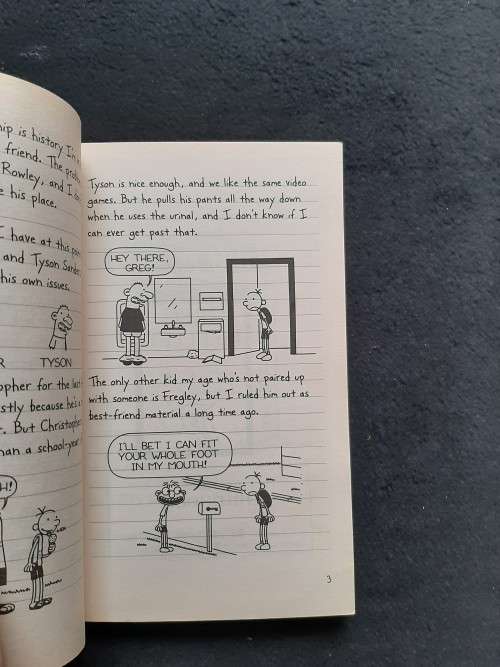 ip is history. I'm
friend. The
Rowley, and I
his place.
I have at this
and Tyson
his own issues.
R TYSON
opher for the
stly because he's a
But Christopher
han a school-year
H!
Tyson is nice enough, and we like the same video
games. But he pulls his pants all the way down
when he uses the urinal, and I don't know if I
can ever get past that.
HEY THERE,
GREG!
The only other kid my age who's not paired up
with someone is Fregley, but I ruled him out as
best-friend material a long time ago.
I'LL BET I CAN FIT
YOUR WHOLE FOOT
IN MY MOUTH!
3